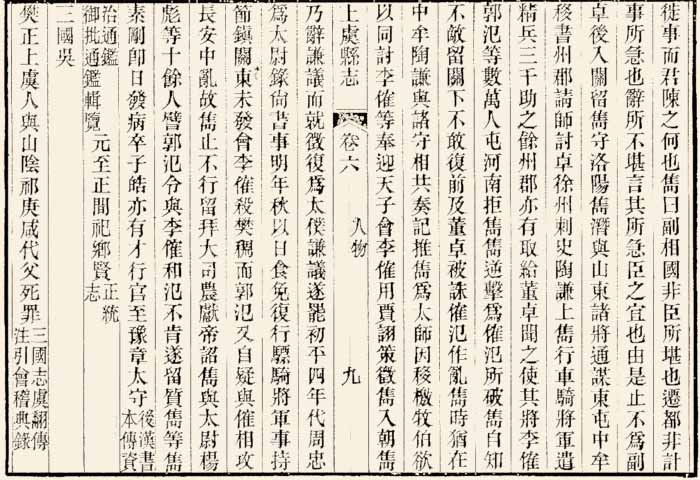 徙事而君陳之何也儁曰副相國非臣所堪也遷都非計
事所急也辭所不堪言其所急臣之宜也由是止不爲副
卓後入關留儁守洛陽儁潛與山東諸將通謀東屯中牟
移書州郡請師討卓徐州刺史陶謙上儁行車騎將軍遣
精兵三千助之餘州郡亦有取給董卓聞之使其將李傕
郭汜等數萬人屯河南拒儁儁逆擊爲傕汜所破儁自知
不敵留關下不敢復前及董卓被誅傕汜作亂儁時猶在
中牟陶謙與諸守相共奏記推儁爲太師因移檄牧伯欲
以同討李傕等奉迎天子會李傕用賈詡策徵儁入朝儁
上虞縣志 卷六 人物 九
乃辭謙議而就徵復爲太僕謙議遂罷初平四年代周忠
爲太尉錄尙書事明年秋以日食免復行驃騎將軍事持
節鎮關東未發會李傕殺樊稠而郭汜又自疑與傕相攻
長安中亂故儁止不行留拜大司農獻帝詔儁與太尉楊
彪等十餘人譬郭汜令與李傕和汜不肯遂留質儁等儁
素剛卽日發病卒子皓亦有才行官至豫章太守後漢書本傳資
治通鑑御批通鑑輯覽元至正間祀鄉賢正統志
三國吳
樊正上虞人與山陰祁庚咸代父死罪三國志虞翻傳注引會稽典錄